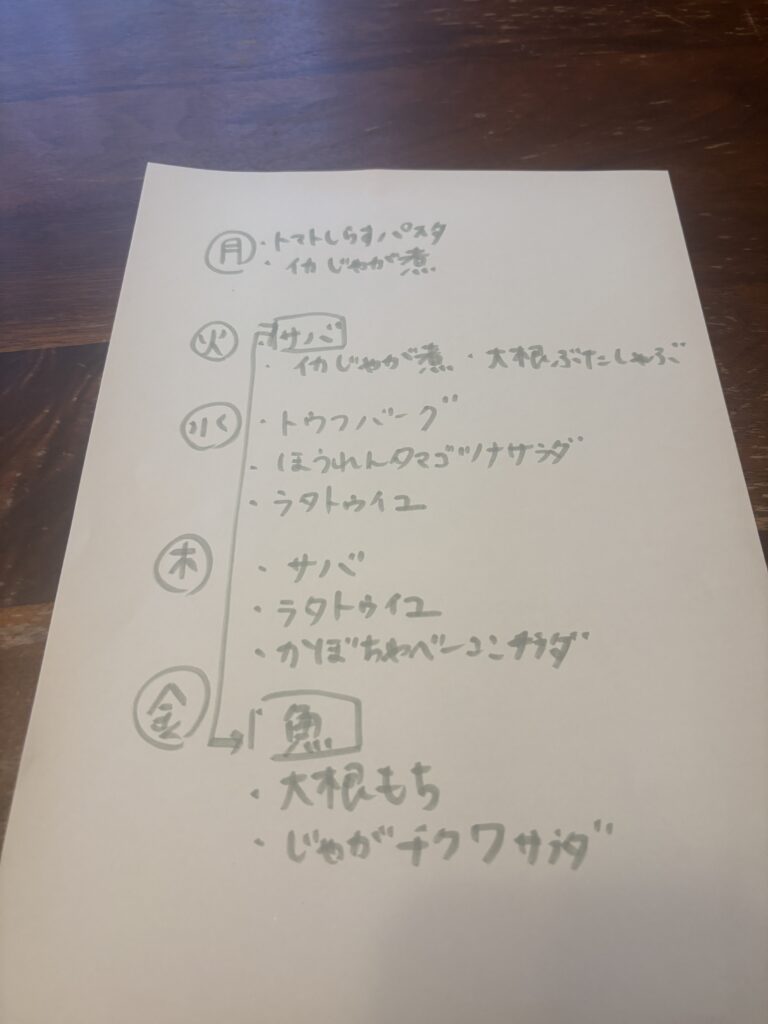 月 ・トマトしらすパスタ
・イカじゃが煮
火 サバ
・イカじゃが煮 ・大根ぶたしゃぶ
水 ・トウフバーグ
・ほうれんタマゴツナサラダ
・ラタトゥイユ
木 ・サバ
・ラタトゥイユ
・かぼちゃベーコンサラダ
金 魚
・大根もち
・じゃがチクワサラダ